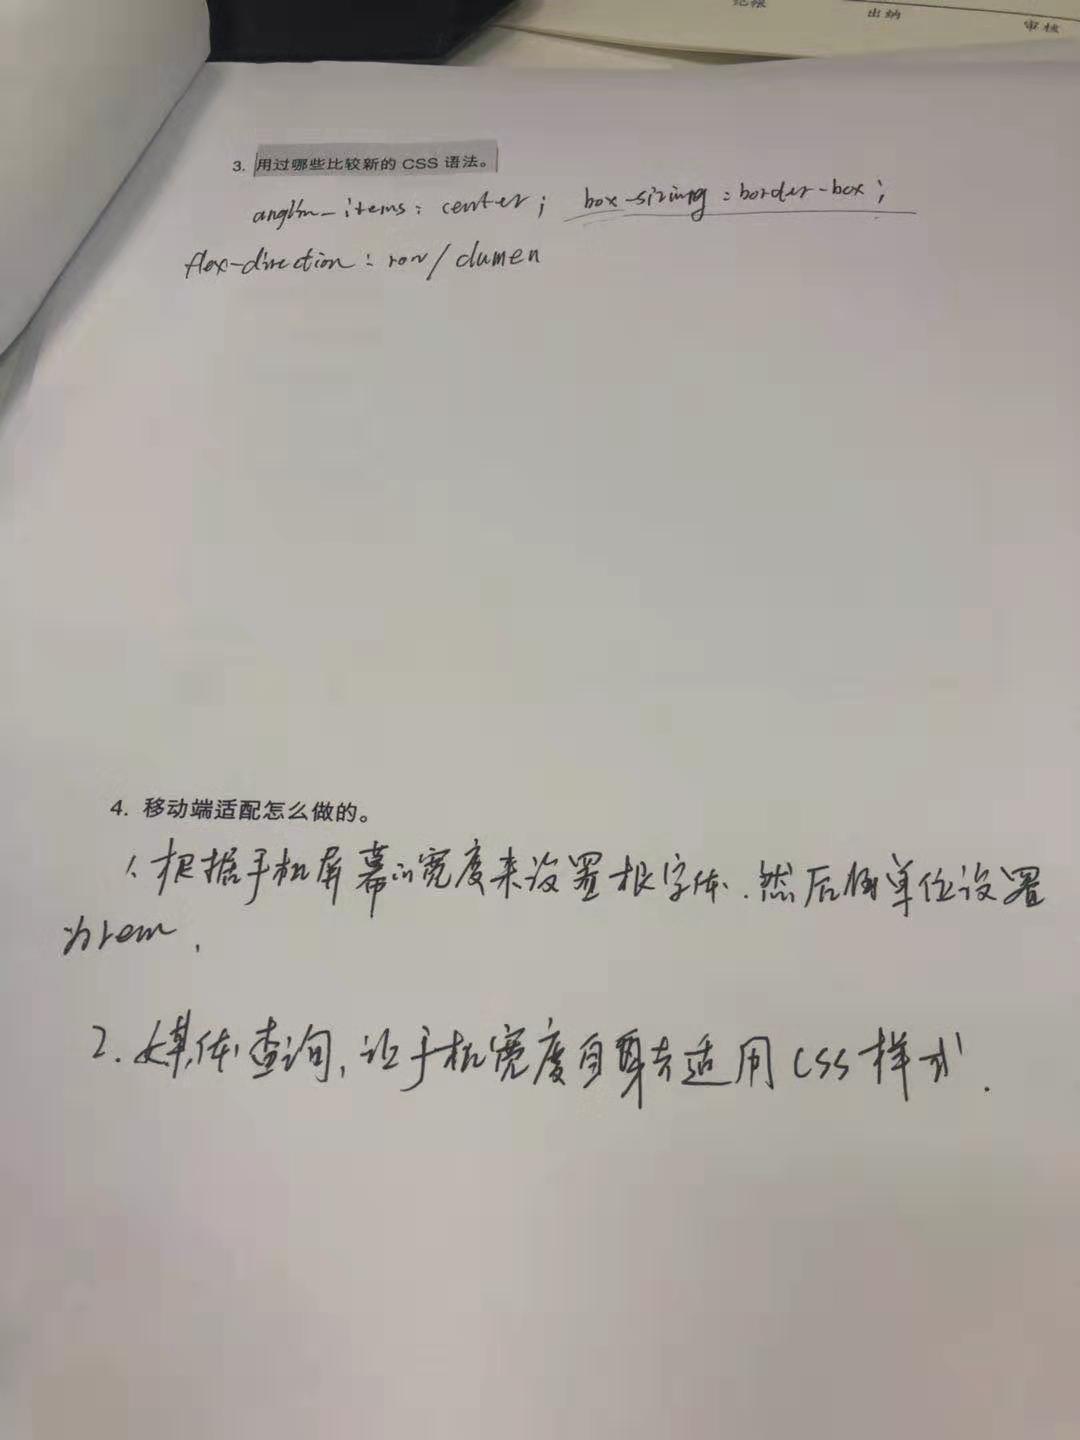 记账
出纳
审核
3. 用过哪些比较新的 CSS 语法。
anglin-items: center; box-sizing: border-box;
flex-direction: row/clumen
4. 移动端适配怎么做的。
1. 根据手机屏幕的宽度来设置根字体. 然后单位设置
为rem.
2. 媒体查询, 让手机宽度自去适用 CSS 样式.